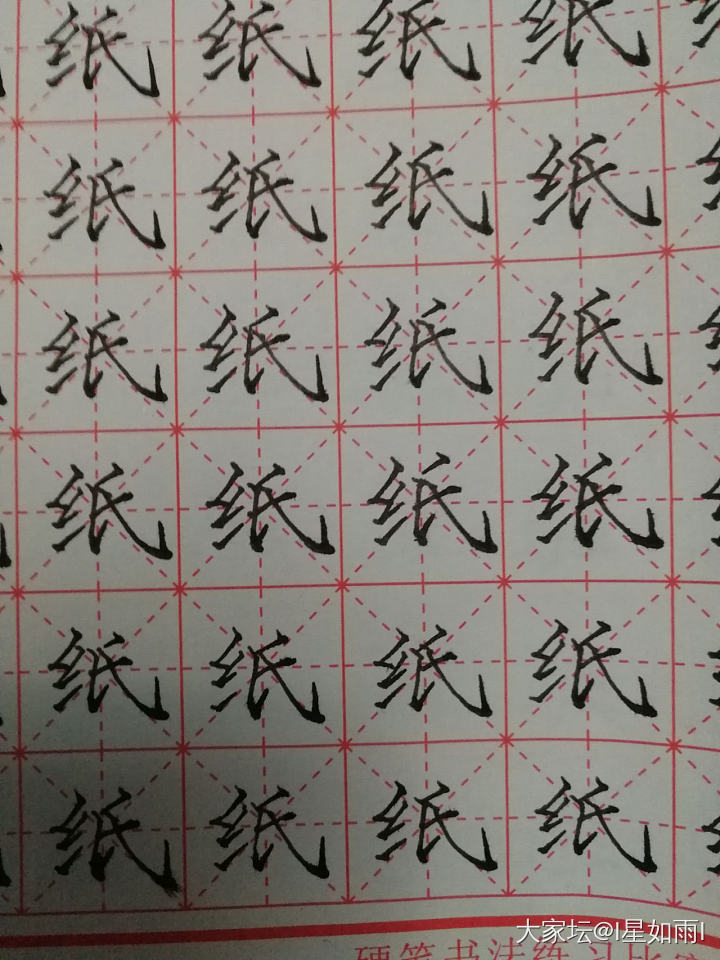 纸 纸 纸 纸
纸 纸 纸 纸
纸 纸 纸 纸
纸 纸 纸 纸
纸 纸 纸 纸
纸 纸 纸 纸
大家坛@I星如雨I
硬笔书法练习比